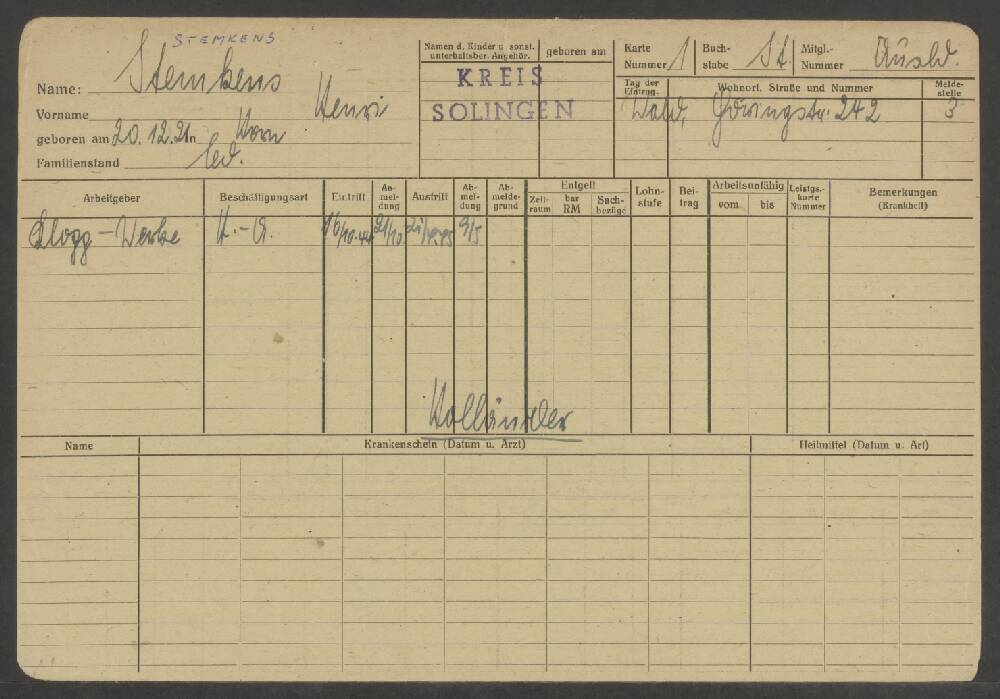 STEMKENS
Name: Stemkens
Vorname Henri
geboren am 20.12.21 in Horn
Familienstand led.
Namen d. Kinder u. sonst. unterhaltsber. Angehör.
geboren am
KREIS
SOLINGEN
Karte Nummer 1
Buchstabe St.
Mitgl.-Nummer Ausld.
Tag der Eintrag.
Wohnort, Straße und Nummer
Meldestelle
Wald, Göringstr. 242 3
Arbeitgeber Beschäftigungsart Eintritt An-meldung Austritt Ab-meldung Ab-meldegrund Entgelt Lohnstufe Bei-trag Arbeitsunfähig Leistgs.-karte Nummer Bemerkungen
Zeitraum bar RM Sachbezüge vom bis (Krankheit)
Werke H.-A. 16/10.44 21/10 9/5
Holländer
Name Krankenschein (Datum u. Arzt) Heilmittel (Datum u. Art)